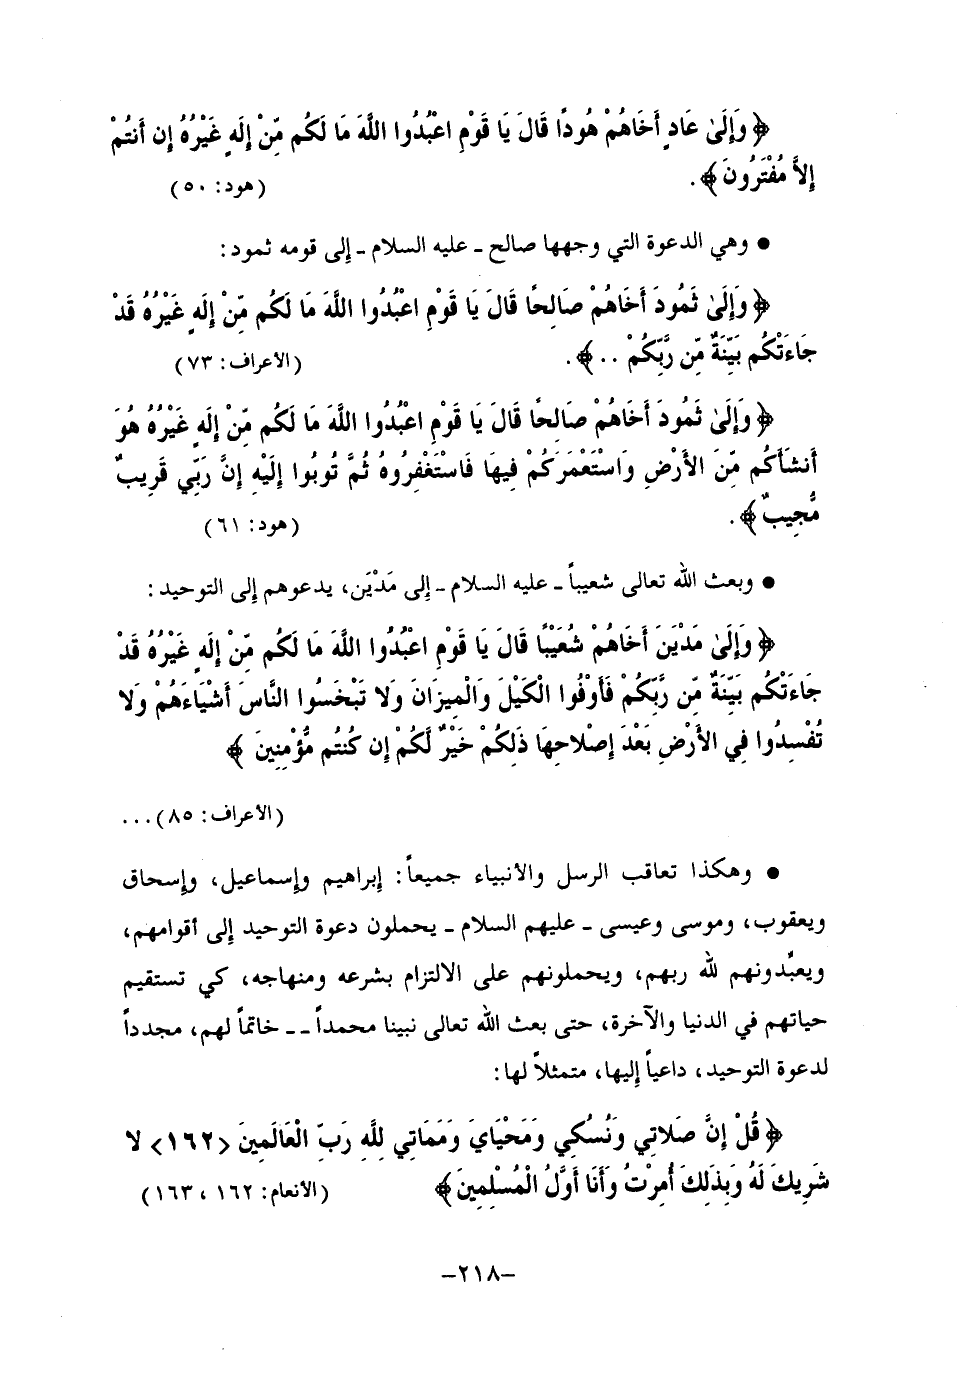 ﴿وَإِلَىٰ عَادٍ أَخَاهُمْ هُودًا قَالَ يَا قَوْمِ اعْبُدُوا اللَّهَ مَا لَكُم مِّنْ إِلَهٍ غَيْرُهُ إِن أَنتُمْ
إِلاَّ مُفْتَرُونَ﴾. (هود: ٥٠)
● وهي الدعوة التي وجهها صالح ـ عليه السلام ـ إلى قومه ثمود:
﴿وَإِلَىٰ ثَمُودَ أَخَاهُمْ صَالِحًا قَالَ يَا قَوْمِ اعْبُدُوا اللَّهَ مَا لَكُم مِّنْ إِلَهٍ غَيْرُهُ قَدْ
جَاءَتْكُم بَيِّنَةٌ مِّن رَّبِّكُمْ ..﴾. (الأعراف: ٧٣)
﴿وَإِلَىٰ ثَمُودَ أَخَاهُمْ صَالِحًا قَالَ يَا قَوْمِ اعْبُدُوا اللَّهَ مَا لَكُم مِّنْ إِلَهٍ غَيْرُهُ هُوَ
أَنشَأَكُم مِّنَ الأَرْضِ وَاسْتَعْمَرَكُمْ فِيهَا فَاسْتَغْفِرُوهُ ثُمَّ تُوبُوا إِلَيْهِ إِنَّ رَبِّي قَرِيبٌ
مُّجِيبٌ﴾. (هود: ٦١)
● وبعث الله تعالى شعيباً ـ عليه السلام ـ إلى مَدْيَن، يدعوهم إلى التوحيد:
﴿وَإِلَىٰ مَدْيَنَ أَخَاهُمْ شُعَيْبًا قَالَ يَا قَوْمِ اعْبُدُوا اللَّهَ مَا لَكُم مِّنْ إِلَهٍ غَيْرُهُ قَدْ
جَاءَتْكُم بَيِّنَةٌ مِّن رَّبِّكُمْ فَأَوْفُوا الْكَيْلَ وَالْمِيزَانَ وَلا تَبْخَسُوا النَّاسَ أَشْيَاءَهُمْ وَلا
تُفْسِدُوا فِي الأَرْضِ بَعْدَ إِصْلاحِهَا ذَلِكُمْ خَيْرٌ لَّكُمْ إِن كُنتُم مُّؤْمِنِينَ ﴾
(الأعراف: ٨٥)...
● وهكذا تعاقب الرسل والأنبياء جميعاً: إبراهيم وإسماعيل، وإسحاق
ويعقوب، وموسى وعيسى ـ عليهم السلام ـ يحملون دعوة التوحيد إلى أقوامهم،
ويعبِّدونهم لله ربهم، ويحملونهم على الالتزام بشرعه ومنهاجه، كي تستقيم
حياتهم في الدنيا والآخرة، حتى بعث الله تعالى نبينا محمداً ـ ـ خاتماً لهم، مجدداً
لدعوة التوحيد، داعياً إليها، متمثلاً لها:
﴿قُلْ إِنَّ صَلاتِي وَنُسُكِي وَمَحْيَايَ وَمَمَاتِي لِلَّهِ رَبِّ الْعَالَمِينَ <١٦٢> لا
شَرِيكَ لَهُ وَبِذَلِكَ أُمِرْتُ وَأَنَا أَوَّلُ الْمُسْلِمِينَ﴾ (الأنعام: ١٦٢، ١٦٣)
–٢١٨–